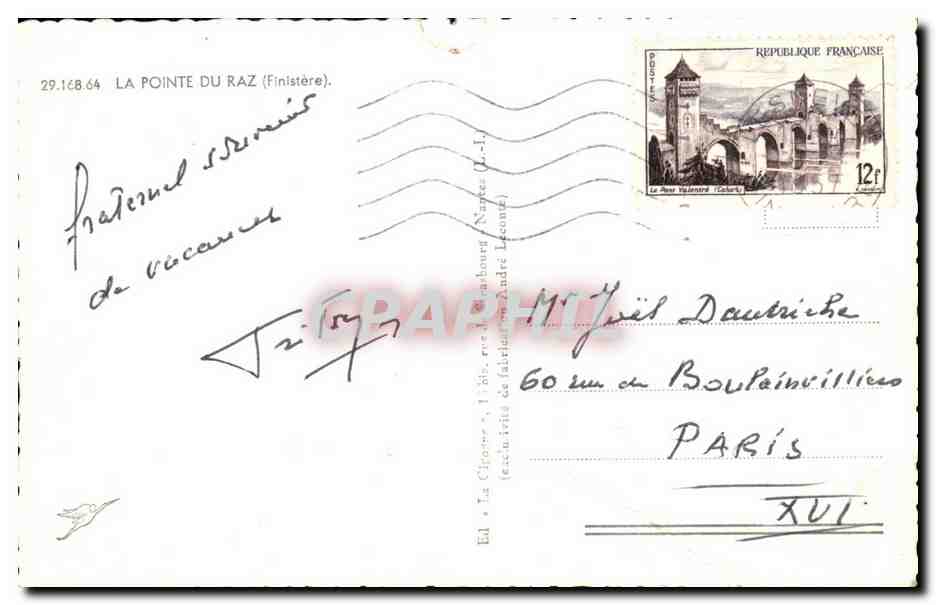 29.168.64 LA POINTE DU RAZ (Finistère).
fraternel souvenir
de vacances
REPUBLIQUE FRANÇAISE
POSTES
12F
Le Pont Valentré (Cahors)
57
CPAPHIL
Ed. « La Cigogne », bis, rue de Strasbourg - Nantes (L.-I.)
(exclusivité de fabrication André Leconte)
Mr Joël Dautriche
60 rue de Boulainvilliers
PARIS
XVI